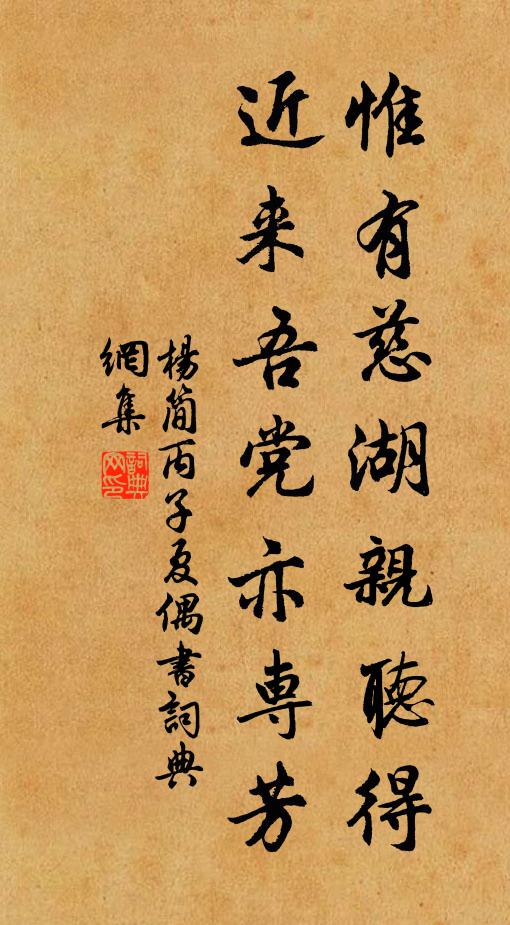 惟有慈湖親聽得
近来吾党亦専芳
楊简丙子夏偶書詞典
網集
詞典
网印